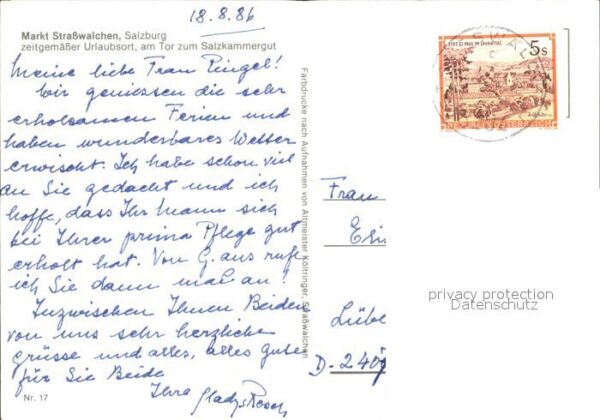 18.8.86
Markt Straßwalchen, Salzburg
zeitgemäßer Urlaubsort, am Tor zum Salzkammergut
Meine liebe Frau Pingel!
Wir geniessen die sehr
erholsamen Ferien und
haben wunderbares Wetter
erwischt. Ich habe schon viel
an Sie gedacht und ich
hoffe, dass Ihr Mann sich
bei Ihrer prima Pflege gut
erholt hat. Von G. aus rufe
ich Sie dann mal an!
Inzwischen Ihnen Beiden
von uns sehr herzliche
Grüsse und alles, alles gute
für Sie Beide
Ihre Gladys Resch
Nr. 17
Farbdrucke nach Aufnahmen von Altmeister Költringer, Straßwalchen
STIFT ST. PAUL IM LAVANTTAL
5s
REPUBLIK ÖSTERREICH
Frau
Elis
Lübe
D-240
privacy protection
Datenschutz